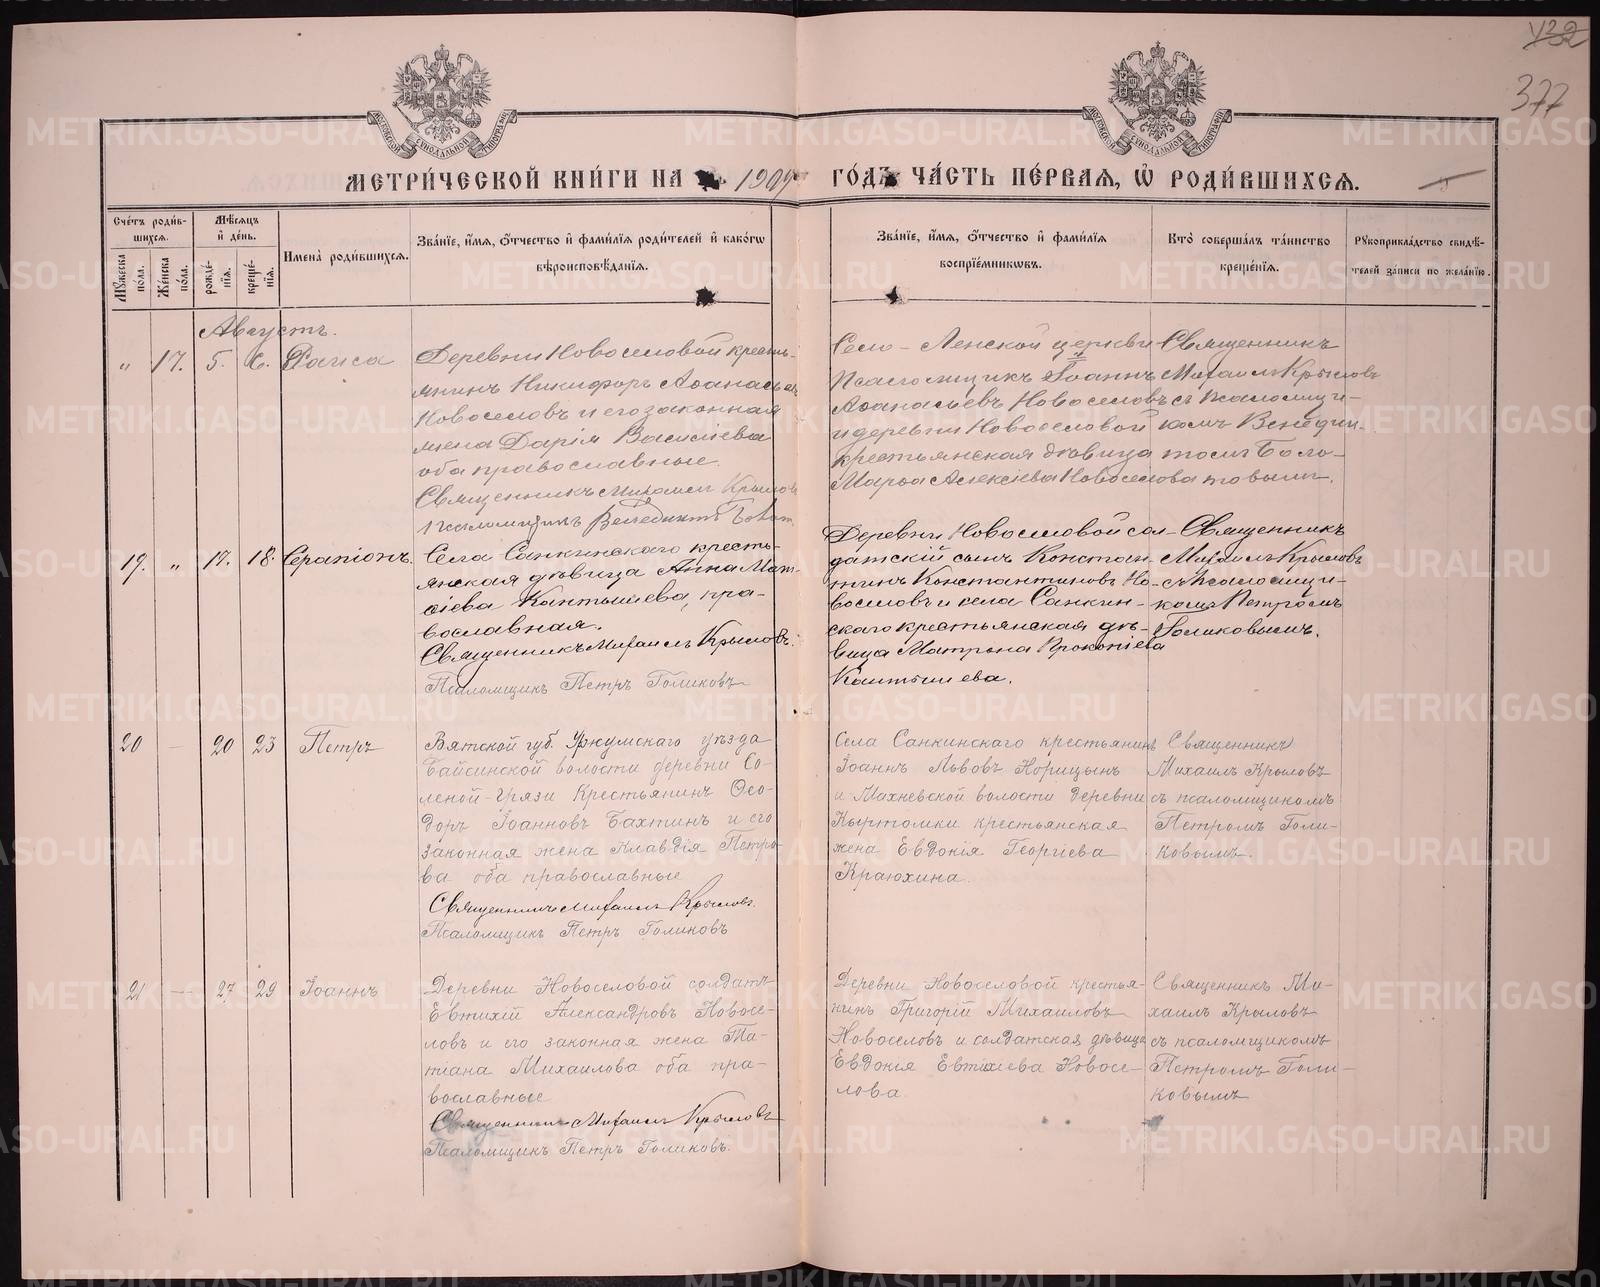 377
МЕТРИ́ЧЕСКОЙ КНИ́ГИ НА 1909 ГОДЪ ЧА́СТЬ ПЕ́РВАЯ, Ѡ РОДИ́ВШИХСЯ.
Сче́тъ роди́вшихся.
Мѣ́сяцъ и де́нь.
Имена̀ роди́вшихся.
Зва́нїе, и́мя, о́тчество и фами́лїя роди́телей и како́гѡ вѣроисповѣ́данїя.
Зва́нїе, и́мя, о́тчество и фами́лїя воспрїе́мникѡвъ.
Кто̀ соверша́лъ та́инство креще́нїя.
Рꙋкоприкла́дство свидѣ́телей за́писи по жела́нїю.
Мꙋ́жеска по́ла.
Же́нска по́ла.
рожде́нїя.
креще́нїя.
Августъ.
„ 17. 5. 6. Раиса
Деревни Новоселовой кресть-
янинъ Никифоръ Аѳанасьевъ
Новоселовъ и его законная
жена Дарія Василіева
оба православные.
Священникъ Михаилъ Крылов
Псаломщикъ Венедиктъ
Село-Ленской церкви
Псаломщикъ Іоаннъ
Аѳанасьевъ Новоселовъ
и деревни Новоселовой
крестьянская дѣвица
Марья Алексіева Новоселова
Священникъ
Михаилъ Крыловъ
съ псаломщи-
комъ Венедик-
томъ Боло-
товымъ.
19. „ 17. 18. Серапіонъ.
Села Санкинскаго кресть-
янская дѣвица Анна Мат-
сіева Кантышева, пра-
вославная.
Священникъ Михаилъ Крыловъ.
Псаломщикъ Петръ Голиковъ
Деревни Новоселовой сол-
датскій сынъ Констан-
тинъ Константиновъ Но-
воселовъ и села Санкин-
скаго крестьянская дѣ-
вица Матрона Прокопіева
Кантышева.
Священникъ
Михаилъ Крыловъ
съ псаломщи-
комъ Петромъ
Голиковымъ.
20 — 20 23 Петръ
Вятской губ. Уржумскаго уѣзда
Байсинской волости деревни Со-
леной-Грязи крестьянинъ Ѳео-
доръ Іоанновъ Бахтинъ и его
законная жена Клавдія Петро-
ва оба православные
Священникъ Михаилъ Крыловъ.
Псаломщикъ Петръ Голиковъ
Села Санкинскаго крестьянинъ
Іоаннъ Львовъ Корицынъ
и Махневской волости деревни
Кыртомки крестьянская
жена Евдокія Георгіева
Краюхина.
Священникъ
Михаилъ Крыловъ
съ псаломщикомъ
Петромъ Голи-
ковымъ.
21 — 27 29 Іоаннъ
Деревни Новоселовой солдатъ
Евтихій Александровъ Новосе-
ловъ и его законная жена Та-
тіана Михаилова оба пра-
вославные
Священникъ Михаилъ Крыловъ
Псаломщикъ Петръ Голиковъ.
Деревни Новоселовой крестья-
нинъ Григорій Михаиловъ
Новоселовъ и солдатская дѣвица
Евдокія Евтихіева Новосе-
лова.
Священникъ Ми-
хаилъ Крыловъ
съ псаломщикомъ
Петромъ Голи-
ковымъ
METRIKI.GASO-URAL.RU